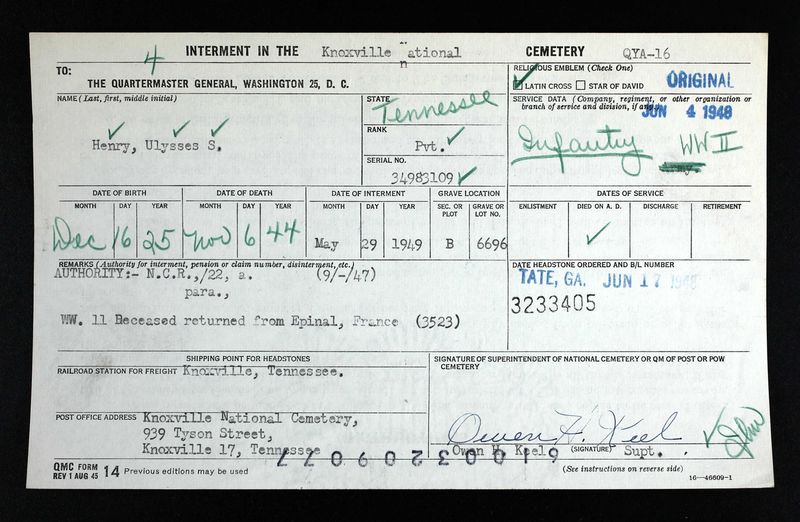 4 INTERMENT IN THE Knoxville National CEMETERY QYA-16
TO:
THE QUARTERMASTER GENERAL, WASHINGTON 25, D. C.
RELIGIOUS EMBLEM (Check One)
LATIN CROSS STAR OF DAVID
ORIGINAL
NAME (Last, first, middle initial)
Henry, Ulysses S.
STATE
Tennessee
RANK
Pvt.
SERIAL NO.
34983109
SERVICE DATA (Company, regiment, or other organization or
branch of service and division, if any)
JUN 4 1948
Infantry WW II
Army.
DATE OF BIRTH DATE OF DEATH DATE OF INTERMENT GRAVE LOCATION DATES OF SERVICE
MONTH DAY YEAR MONTH DAY YEAR MONTH DAY YEAR SEC. OR PLOT GRAVE OR LOT NO. ENLISTMENT DIED ON A. D. DISCHARGE RETIREMENT
Dec 16 25 Nov 6 44 May 29 1949 B 6696
REMARKS (Authority for interment, pension or claim number, disinterment, etc.)
AUTHORITY:- N.C.R.,/22, a. (9/-/47)
para.,
WW. 11 Deceased returned from Epinal, France (3523)
DATE HEADSTONE ORDERED AND B/L NUMBER
TATE, GA. JUN 17 1948
3233405
SHIPPING POINT FOR HEADSTONES
RAILROAD STATION FOR FREIGHT Knoxville, Tennessee.
POST OFFICE ADDRESS Knoxville National Cemetery,
939 Tyson Street,
Knoxville 17, Tennessee
SIGNATURE OF SUPERINTENDENT OF NATIONAL CEMETERY OR QM OF POST OR POW
CEMETERY
Owen H. Keel
Owen H. Keel (SIGNATURE) Supt.
61003209077
QMC FORM
REV 1 AUG 45 14 Previous editions may be used
(See instructions on reverse side)
16—46609-1